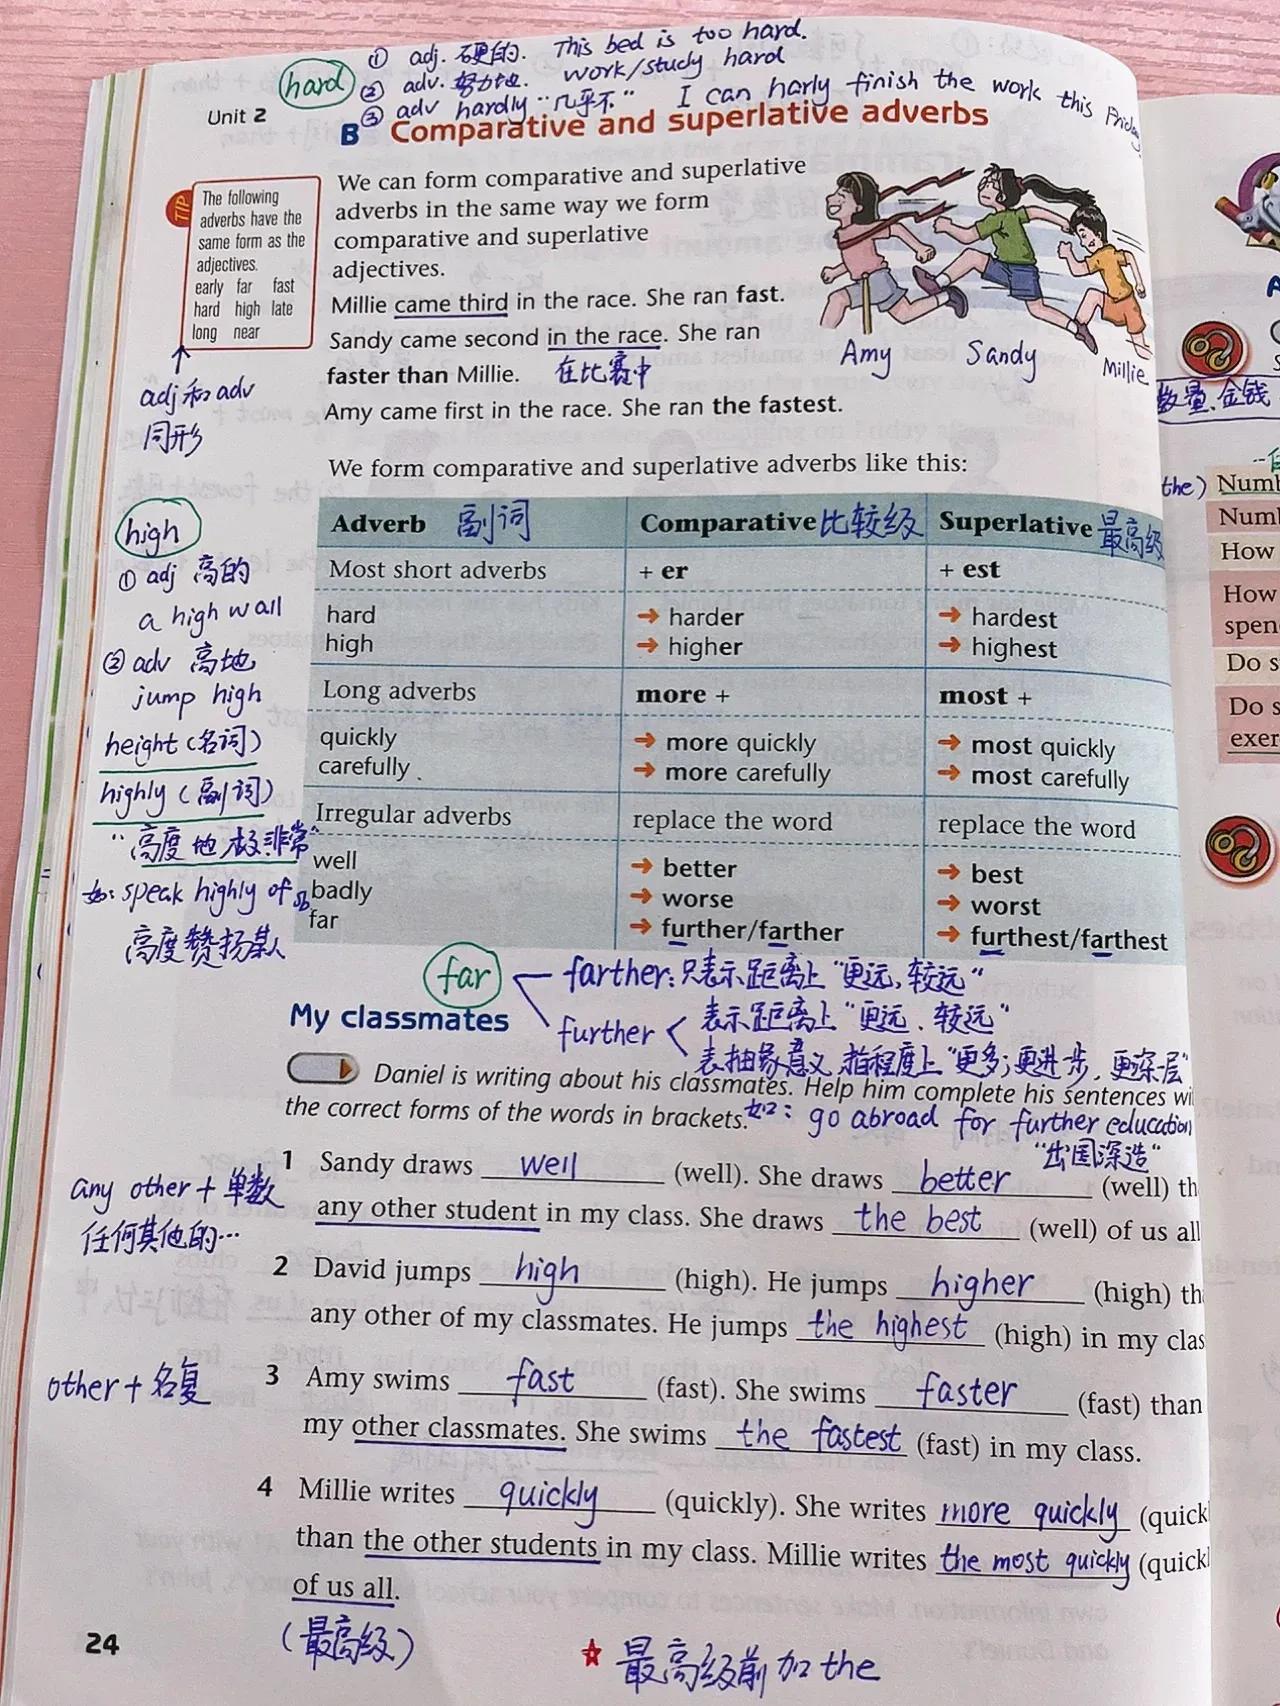 hard
① adj. 硬的. This bed is too hard.
② adv. 努力地. work/study hard
③ adv hardly "几乎不" I can harly finish the work this Friday.
Unit 2
B Comparative and superlative adverbs
TIP
The following
adverbs have the
same form as the
adjectives.
early far fast
hard high late
long near
adj 和 adv
同形
We can form comparative and superlative
adverbs in the same way we form
comparative and superlative
adjectives.
Millie came third in the race. She ran fast.
Sandy came second in the race. She ran
faster than Millie. 在比赛中
Amy came first in the race. She ran the fastest.
Amy Sandy Millie
We form comparative and superlative adverbs like this:
Adverb 副词 Comparative 比较级 Superlative 最高级
Most short adverbs + er + est
hard → harder → hardest
high → higher → highest
Long adverbs more + most +
quickly → more quickly → most quickly
carefully → more carefully → most carefully
Irregular adverbs replace the word replace the word
well → better → best
badly → worse → worst
far → further/farther → furthest/farthest
high
① adj 高的
a high wall
② adv 高地
jump high
height (名词)
highly (副词)
"高度地,极,非常"
如: speak highly of sb
高度赞扬某人
far
farther: 只表示距离上"更远,较远"
further
表示距离上"更远、较远"
表抽象意义,指程度上"更多;更进一步,更深层"
My classmates
Daniel is writing about his classmates. Help him complete his sentences wi
the correct forms of the words in brackets. 如: go abroad for further education
"出国深造"
1 Sandy draws well (well). She draws better (well) th
any other student in my class. She draws the best (well) of us all
any other + 单数
任何其他的…
2 David jumps high (high). He jumps higher (high) th
any other of my classmates. He jumps the highest (high) in my clas
3 Amy swims fast (fast). She swims faster (fast) than
my other classmates. She swims the fastest (fast) in my class.
other + 名复
4 Millie writes quickly (quickly). She writes more quickly (quick
than the other students in my class. Millie writes the most quickly (quick
of us all.
(最高级)
24
☆ 最高级前加 the
数量、金钱
the)
Numb
Num
How
How
spen
Do s
Do s
exer